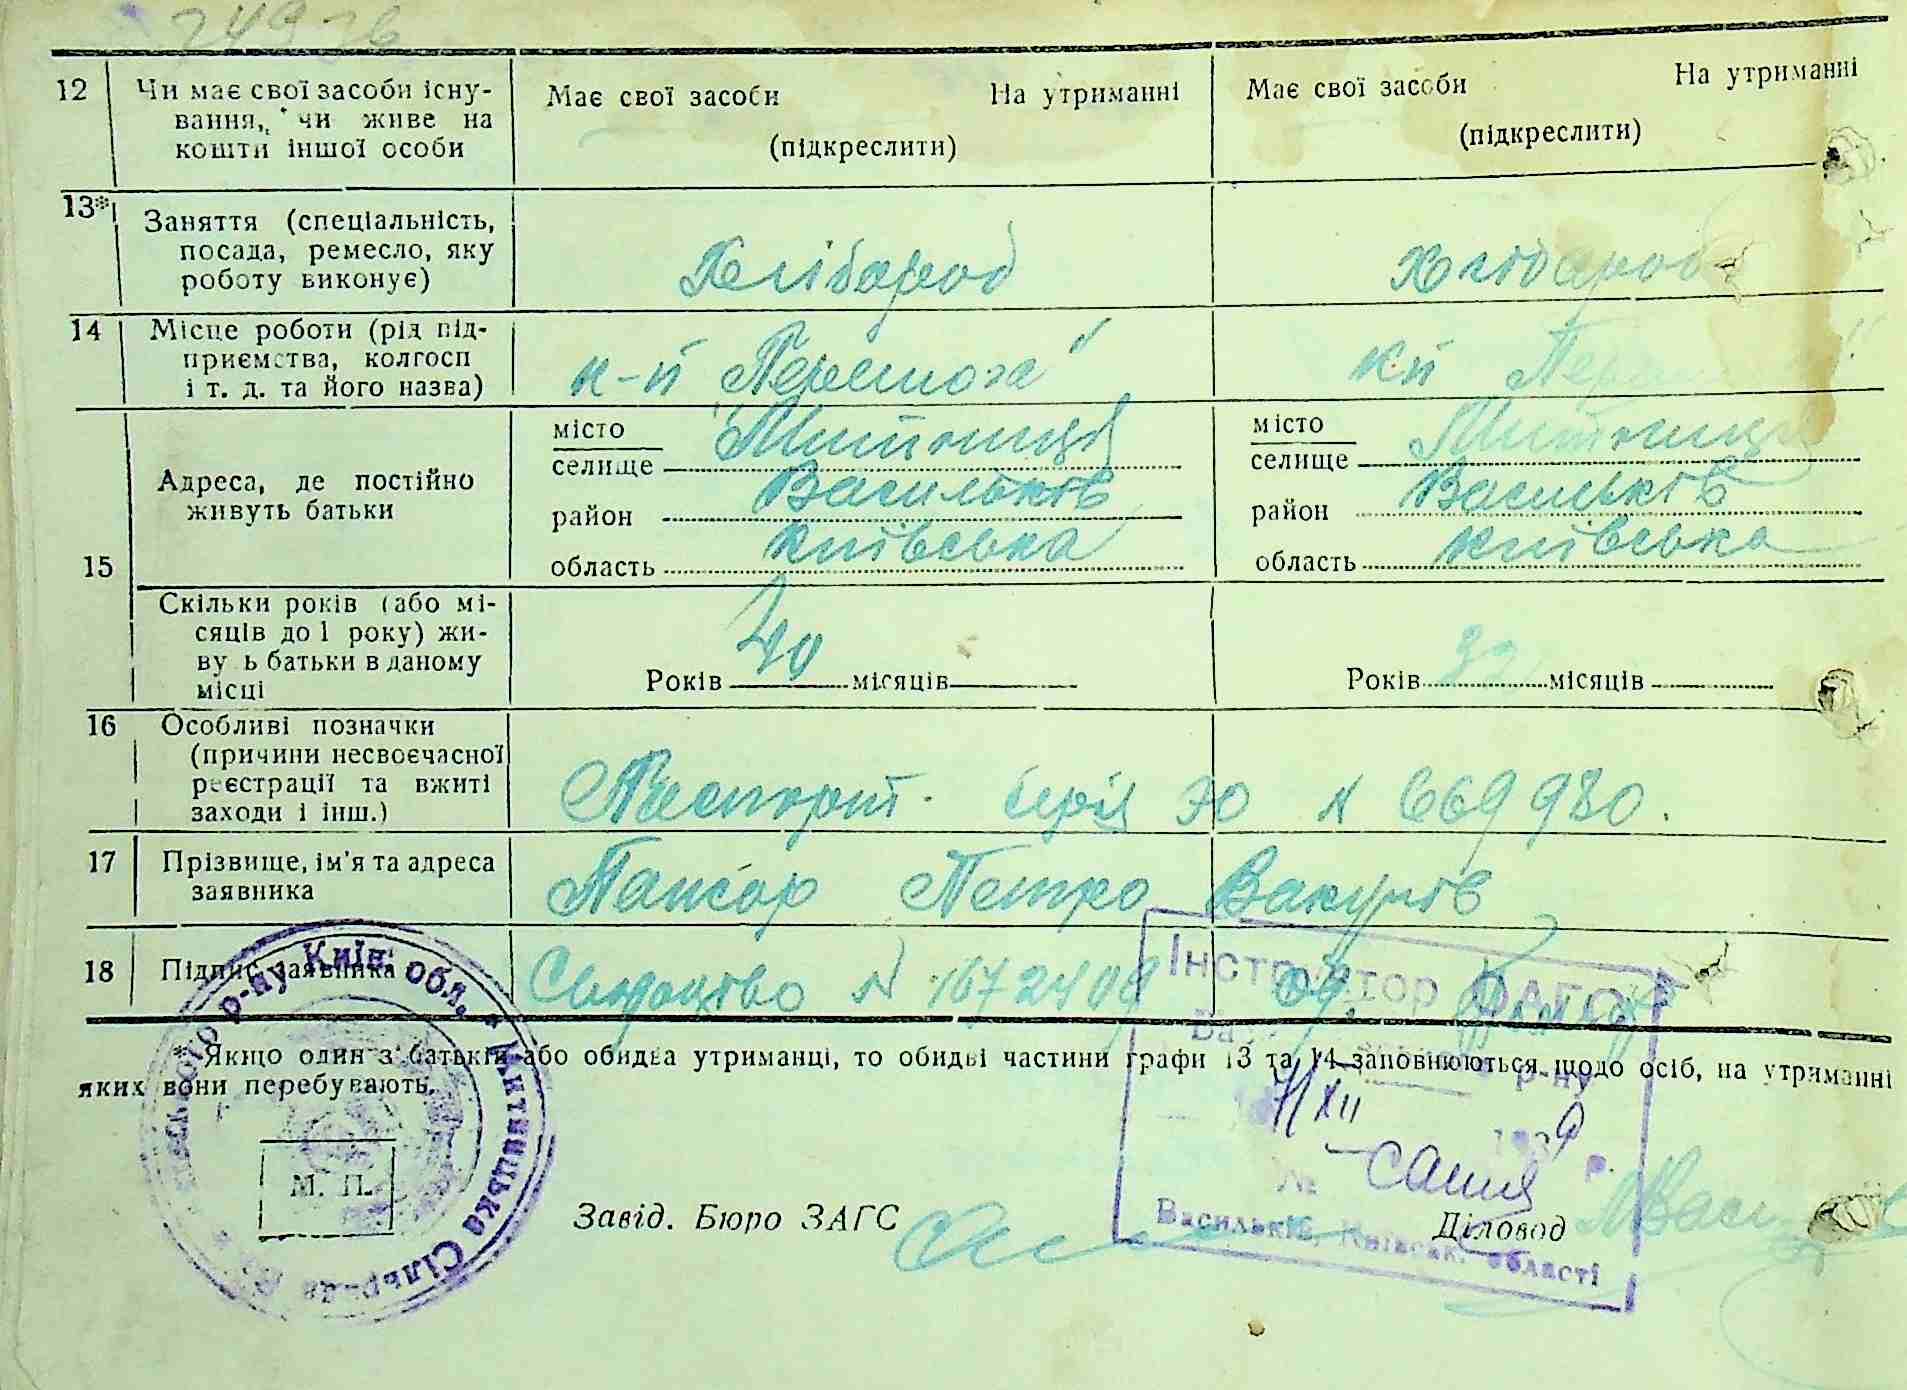 24926
12 Чи має свої засоби існу-
вання, чи живе на
кошти іншої особи
Має свої засоби На утриманні
(підкреслити)
Має свої засоби На утриманні
(підкреслити)
13* Заняття (спеціальність,
посада, ремесло, яку
роботу виконує)
Хлібороб
Хлібороб
14 Місце роботи (рід під-
приємства, колгосп
і т. д. та його назва)
к-п "Перемога"
кп
15 Адреса, де постійно
живуть батьки
місто
селище Митниця
район Васильків
область київська
місто
селище Митниця
район Васильків
область київська
Скільки років (або мі-
сяців до 1 року) жи-
ву ь батьки в даному
місці
Років 40 місяців
Років 32 місяців
16 Особливі позначки
(причини несвоєчасної
реєстрації та вжиті
заходи і інш.)
Паспорт серія ЭО № 669980.
17 Прізвище, ім'я та адреса
заявника
Петро
18 Підпис заявника
№ 1672409
* Якщо один з батьків або обидва утриманці, то обидві частини графи 13 та 14 заповнюються щодо осіб, на утриманні
яких вони перебувають.
Київ. обл. * Митницька Сільрада
р-ну
М. П.
Інструктор ЗАГС
р-ну
11/XII 1939 р.
№
Васильків, Київськ. області
Завід. Бюро ЗАГС
Діловод